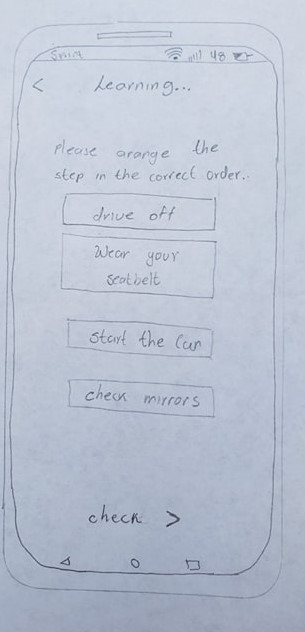 48
<
Learning...
please arange the
step in the correct order..
drive off
Wear your
seatbelt
start the Car
check mirrors
check >